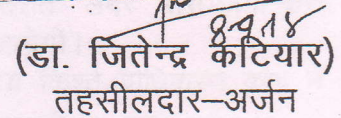 (डा. जितेन्द्र कटियार)
तहसीलदार–अर्जन